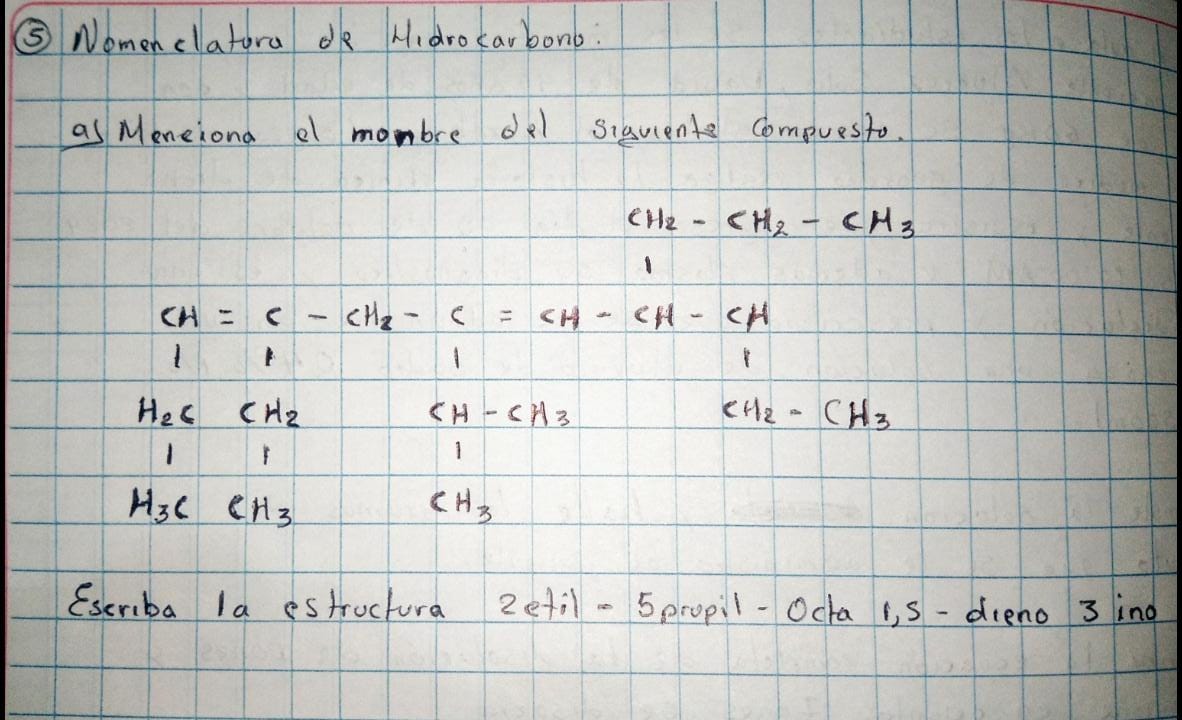 ⑤ Nomenclatura de Hidrocarbono.
a) Menciona el mombre del siguiente Compuesto.
CH2 - CH2 - CH3
|
CH = C - CH2 - C = CH - CH - CH
| | | |
H2C CH2 CH - CH3 CH2 - CH3
| | |
H3C CH3 CH3
Escriba la estructura 2etil - 5propil - Octa 1,5 - dieno 3 ino